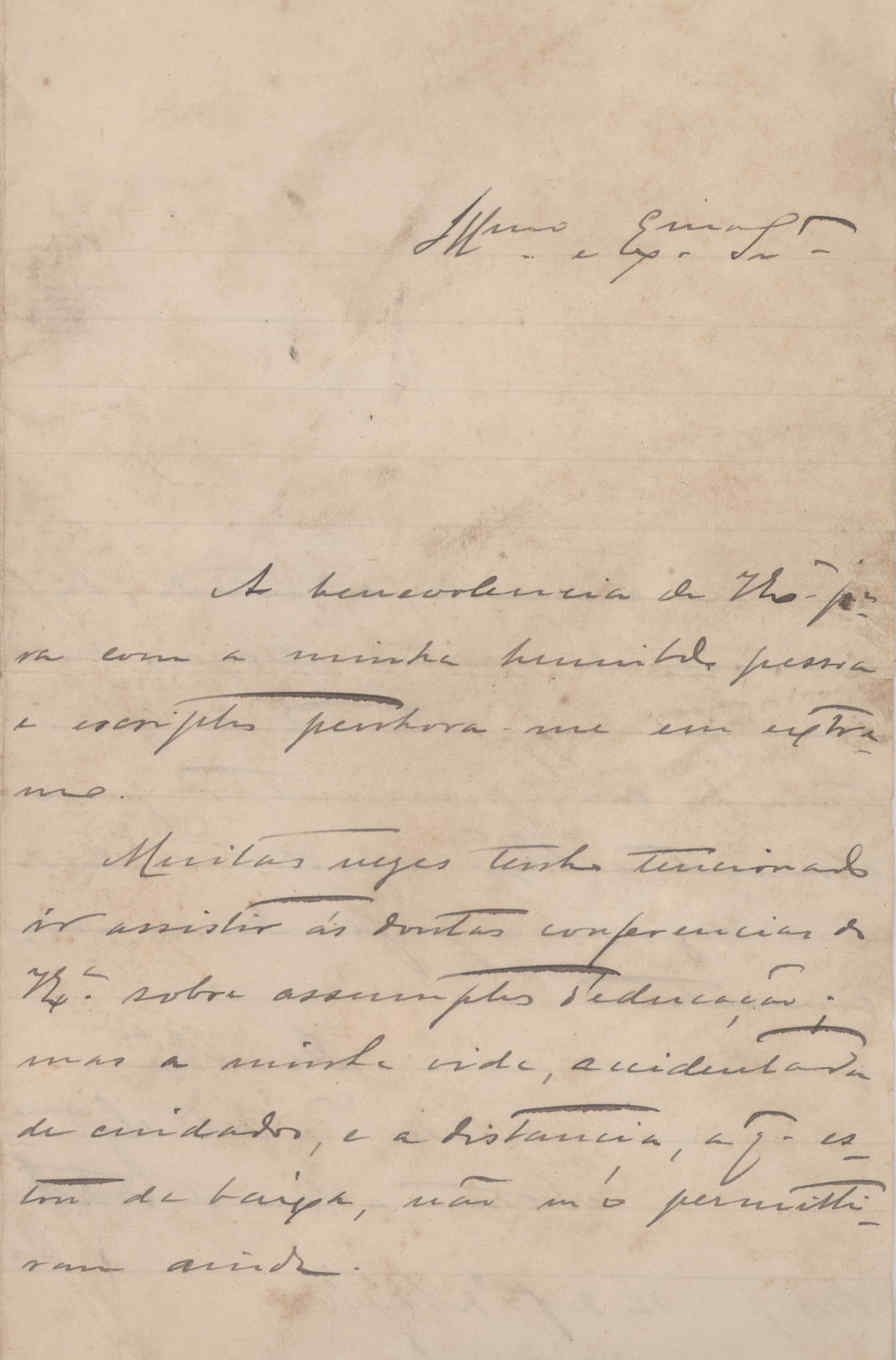 Illmo. e Exmo. Sr.
A benevolencia de V. Exa. pa-
ra com a minha humilde pessoa
e escriptos penhora-me em extre-
mo.
Muitas vezes tenho tencionado
ir assistir ás doutas conferencias de
V. Exa. sobre assumptos d'educação;
mas a minha vida, accidentada
de cuidados, e a distancia, a q. es-
tou da baixa, não m'o permitti-
ram ainda.